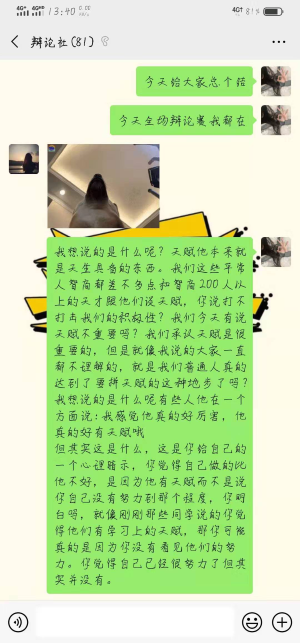 13:40
81%
辩论社(81)
今天给大家总个结
今天全场辩论赛我都在
我想说的是什么呢？天赋他本来就
是天生具备的东西。我们这些平常
人智商都差不多点和智商200人以
上的天才跟他们谈天赋，你说打不
打击我们的积极性？我们今天有说
天赋不重要吗？我们承认天赋是很
重要的，但是就像我说的大家一直
都不理解的，就是我们普通人真的
达到了要拼天赋的这种地步了吗？
我想说的是什么呢有些人他在一个
方面说：我感觉他真的好厉害，他
真的好有天赋哦
但其实这是什么，这是你给自己的
一个心理暗示，你觉得自己做的比
他不好，是因为他有天赋而不是说
你自己没有努力到那个程度，你明
白吗，就像刚刚那些同学说的你觉
得他们有学习上的天赋，那你可能
真的是因为你没有看见他们的努
力。你觉得自己已经很努力了但其
实并没有。